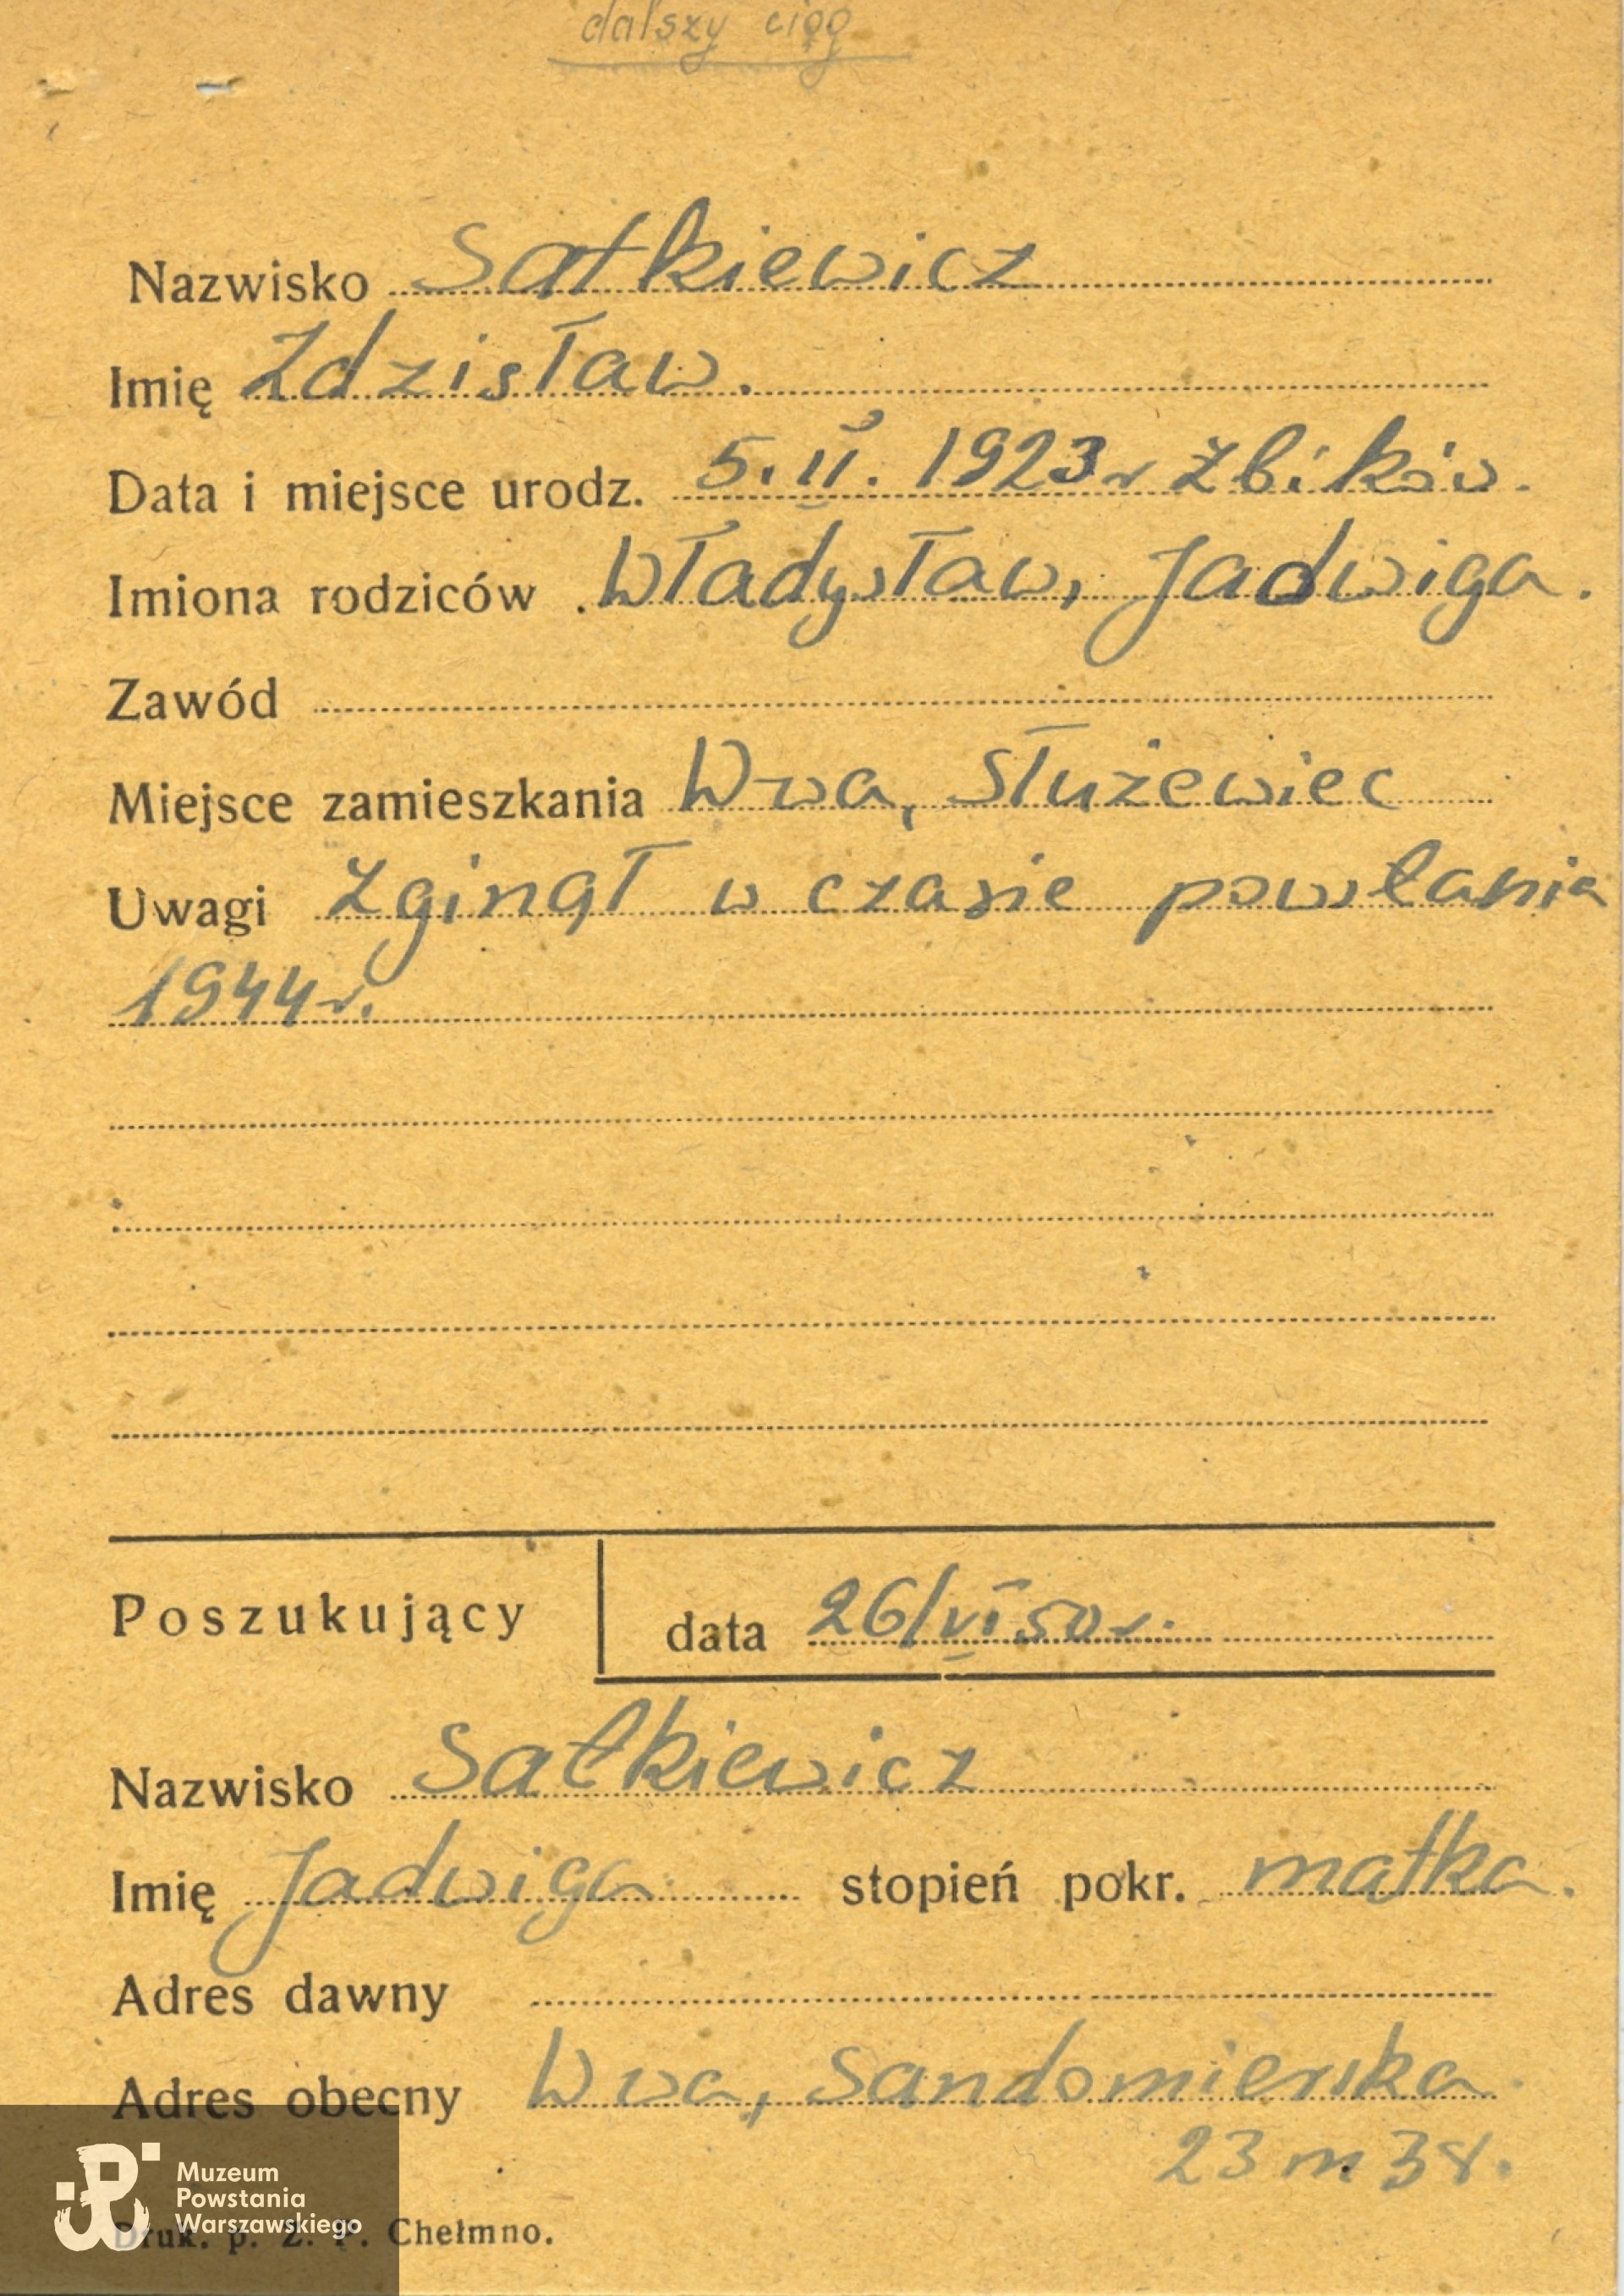 dalszy ciąg
Nazwisko Satkiewicz
Imię Zdzisław.
Data i miejsce urodz. 5.II. 1923r Żbików.
Imiona rodziców Władysław, Jadwiga.
Zawód
Miejsce zamieszkania Wwa, Służewiec
Uwagi Zginął w czasie powstania
1944r.
Poszukujący
data 26/VI 50r.
Nazwisko Satkiewicz
Imię Jadwiga stopień pokr. matka.
Adres dawny
Adres obecny Wwa, Sandomierska
23 m. 38.
Muzeum
Powstania
Warszawskiego
Druk. p. Z. P. Chełmno.